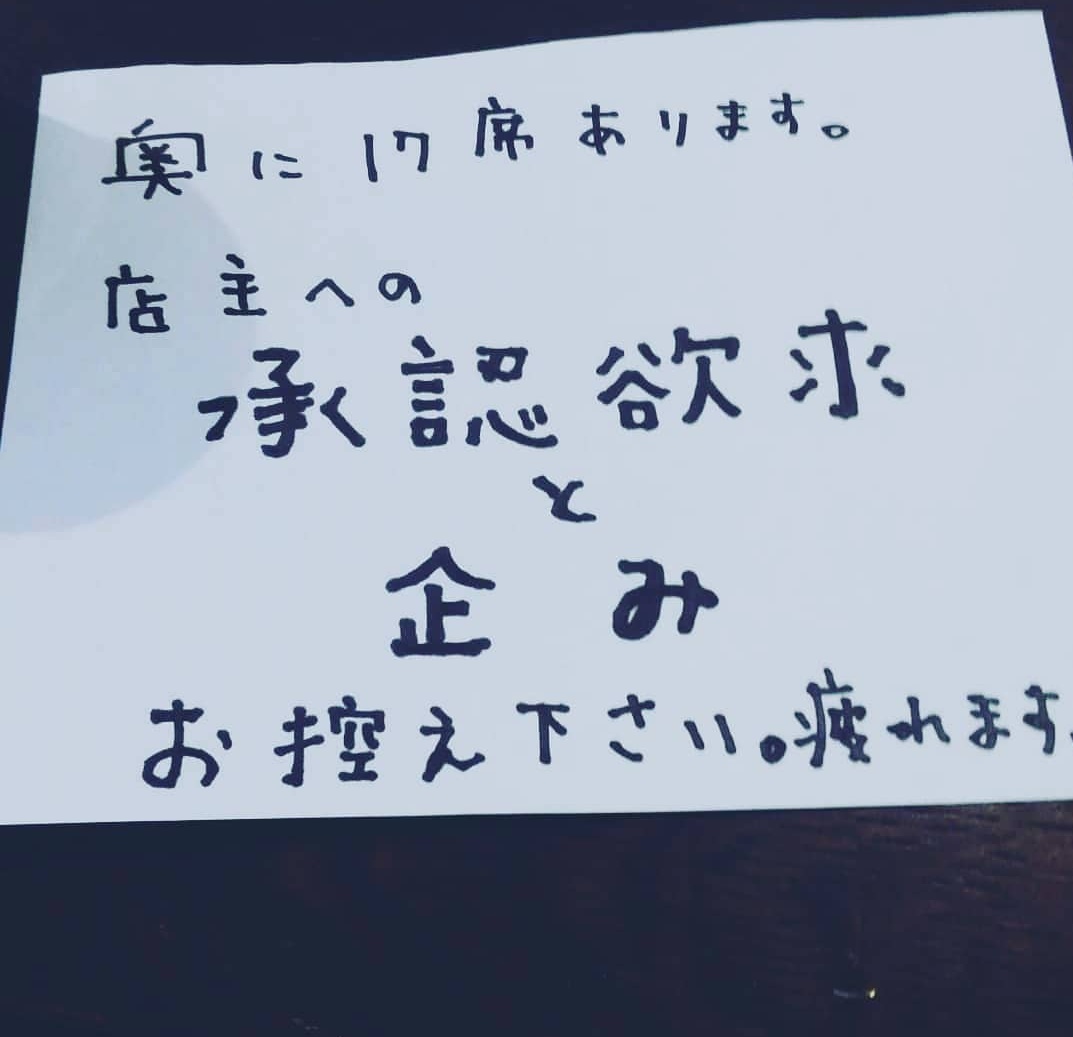 奥に17席あります。
店主への
承認欲求
と
企み
お控え下さい。疲れます.